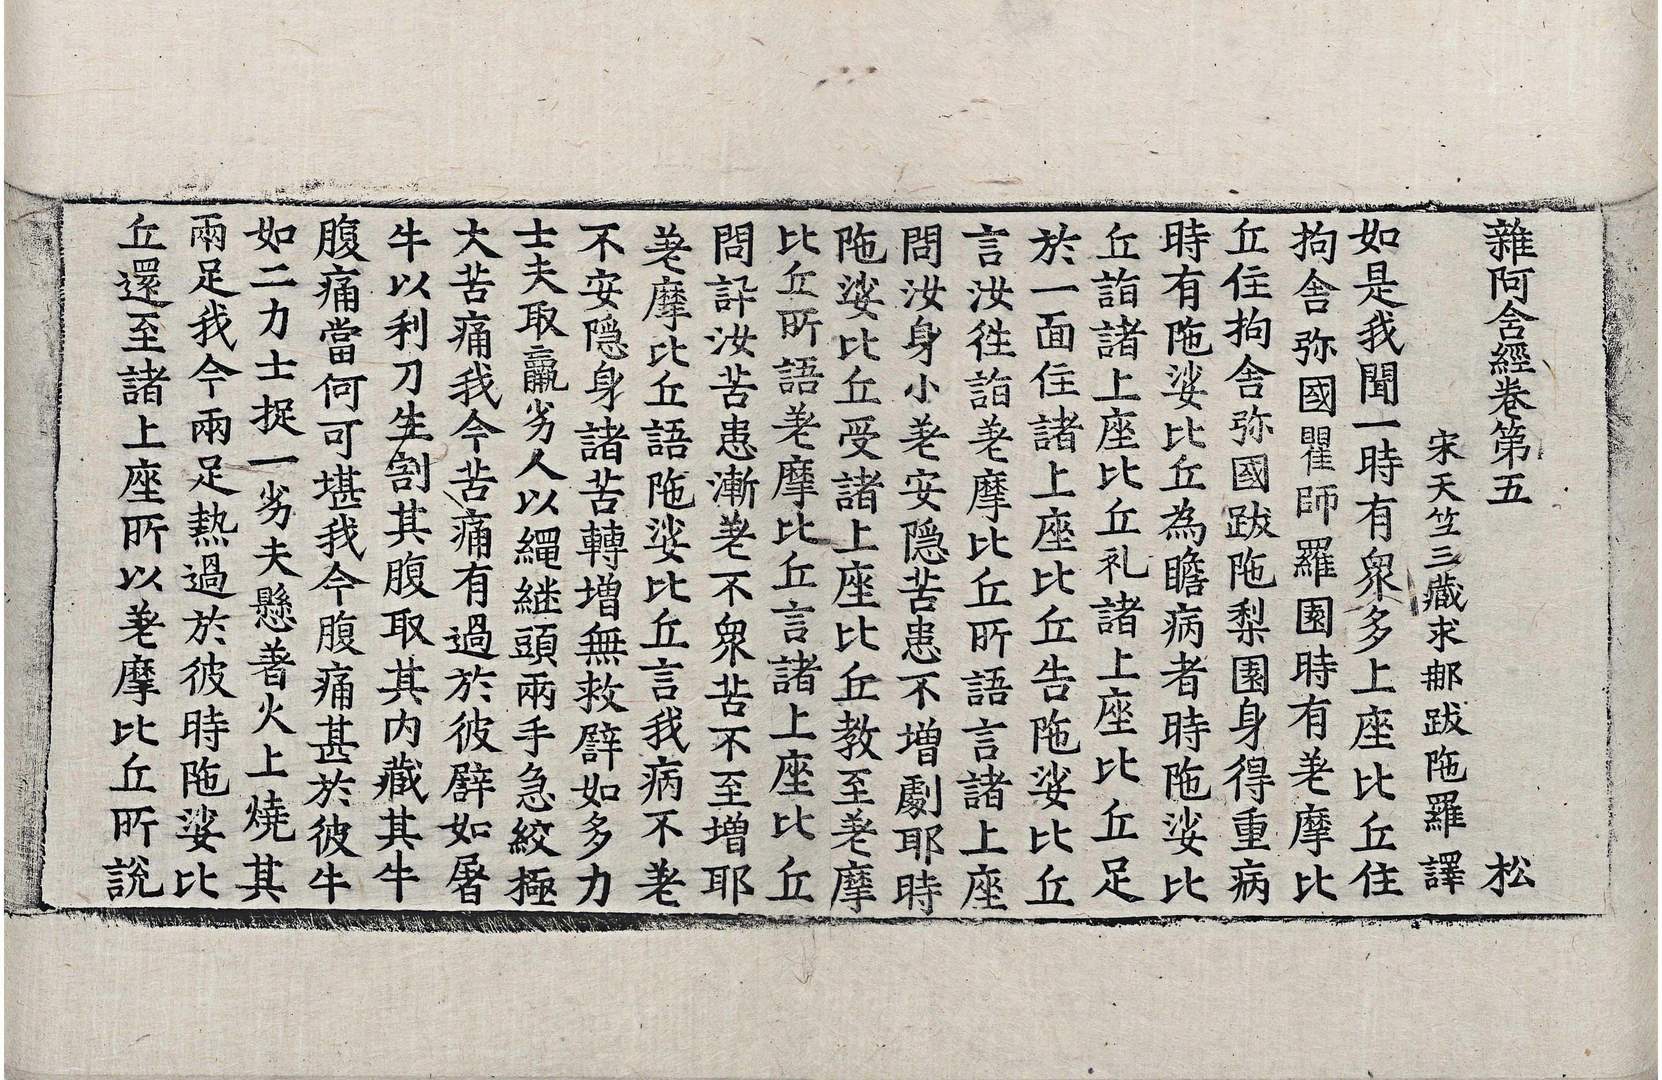 雜阿含經卷第五 松
宋天竺三藏求那跋陁羅 譯
如是我聞一時有衆多上座比丘住
拘舍弥國瞿師羅園時有差摩比
丘住拘舍弥國跋陁梨園身得重病
時有陁娑比丘為瞻病者時陁娑比
丘詣諸上座比丘礼諸上座比丘足
於一面住諸上座比丘告陁娑比丘
言汝往詣差摩比丘所語言諸上座
問汝身小差安隱苦患不增劇耶時
陁娑比丘受諸上座比丘教至差摩
比丘所語差摩比丘言諸上座比丘
問訊汝苦患漸差不衆苦不至增耶
差摩比丘語陁娑比丘言我病不差
不安隱身諸苦轉增無救譬如多力
士夫取羸劣人以繩継頭兩手急絞極
大苦痛我今苦痛有過於彼譬如屠
牛以利刀生割其腹取其內藏其牛
腹痛當何可堪我今腹痛甚於彼牛
如二力士捉一劣夫懸著火上燒其
兩足我今兩足熱過於彼時陁娑比
丘還至諸上座所以差摩比丘所說